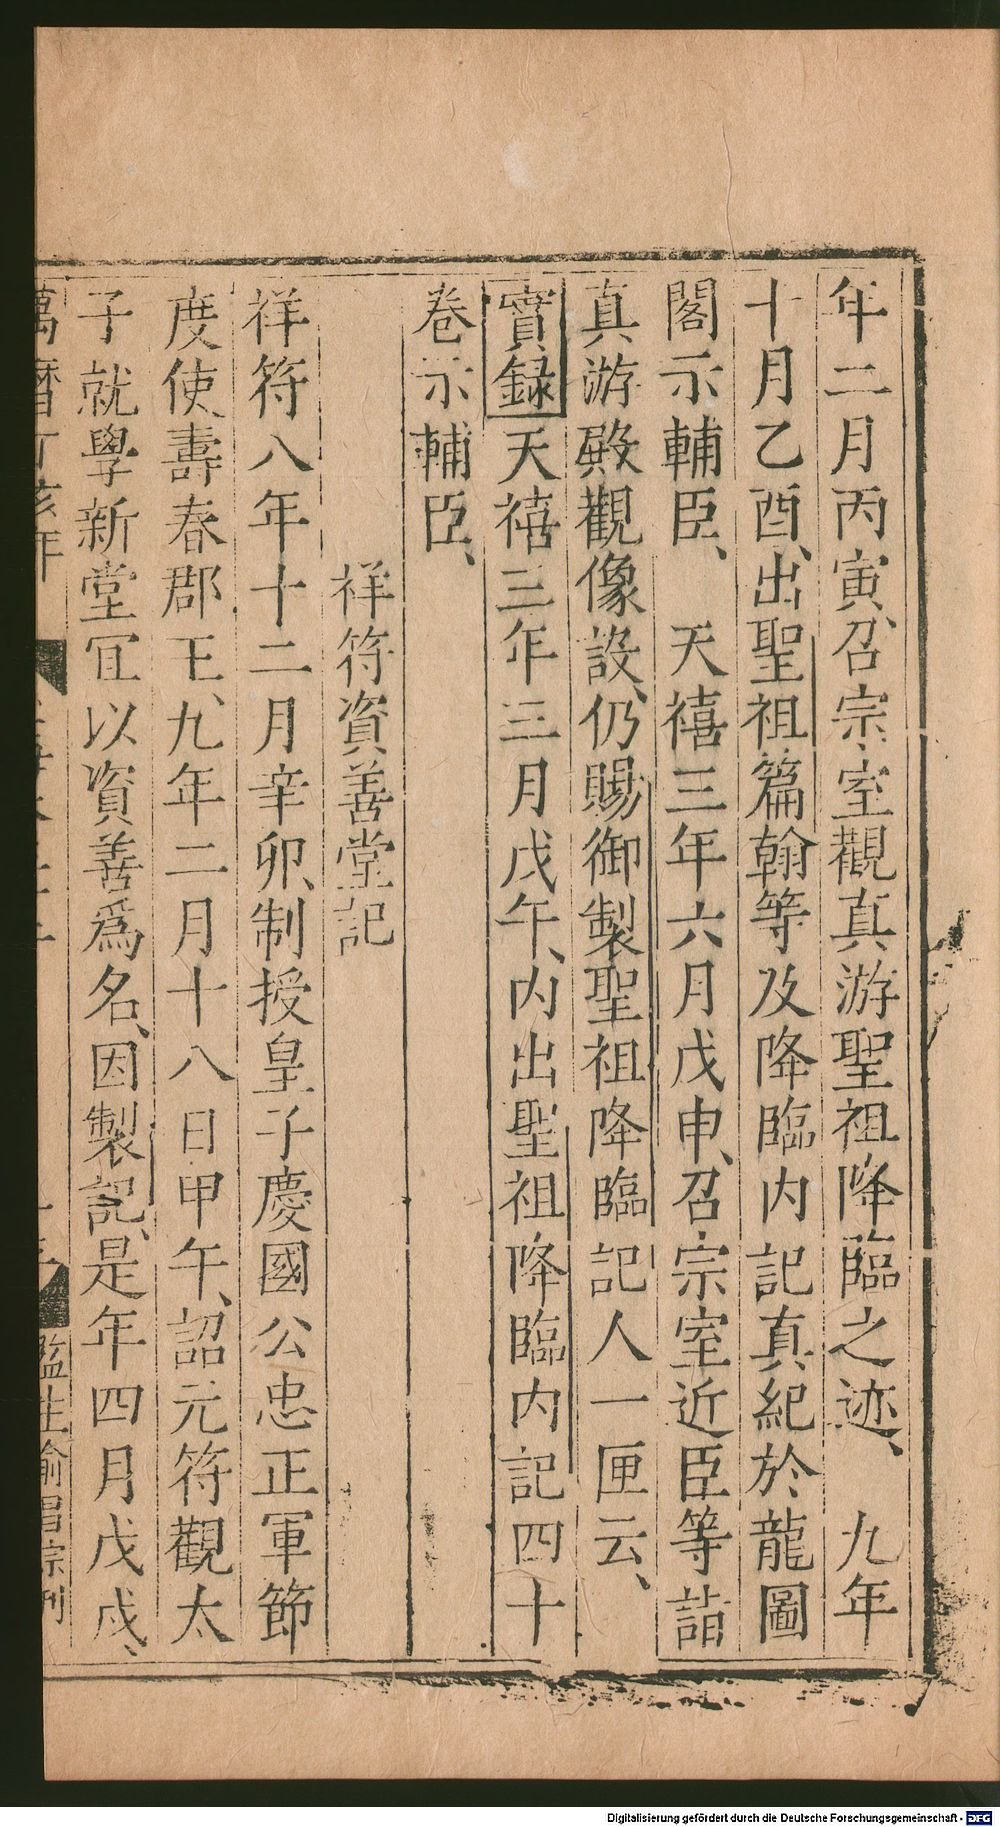 年二月丙寅、召宗室觀真游聖祖降臨之迹、　九年
十月乙酉、出聖祖篇翰等及降臨内記真紀於龍圖
閣示輔臣、　天禧三年六月戊申、召宗室近臣等詣
真游殿觀像設、仍賜御製聖祖降臨記人一匣云、
實録天禧三年三月戊午、内出聖祖降臨内記四十
卷示輔臣、
祥符資善堂記
祥符八年十二月辛卯、制授皇子慶國公忠正軍節
度使、壽春郡王、九年二月十八日甲午、詔元符觀太
子就學新堂宜以資善爲名、因製記、是年四月戊戌、
萬曆丁亥年
監生俞昌宗刊
Digitalisierung gefördert durch die Deutsche Forschungsgemeinschaft - DFG